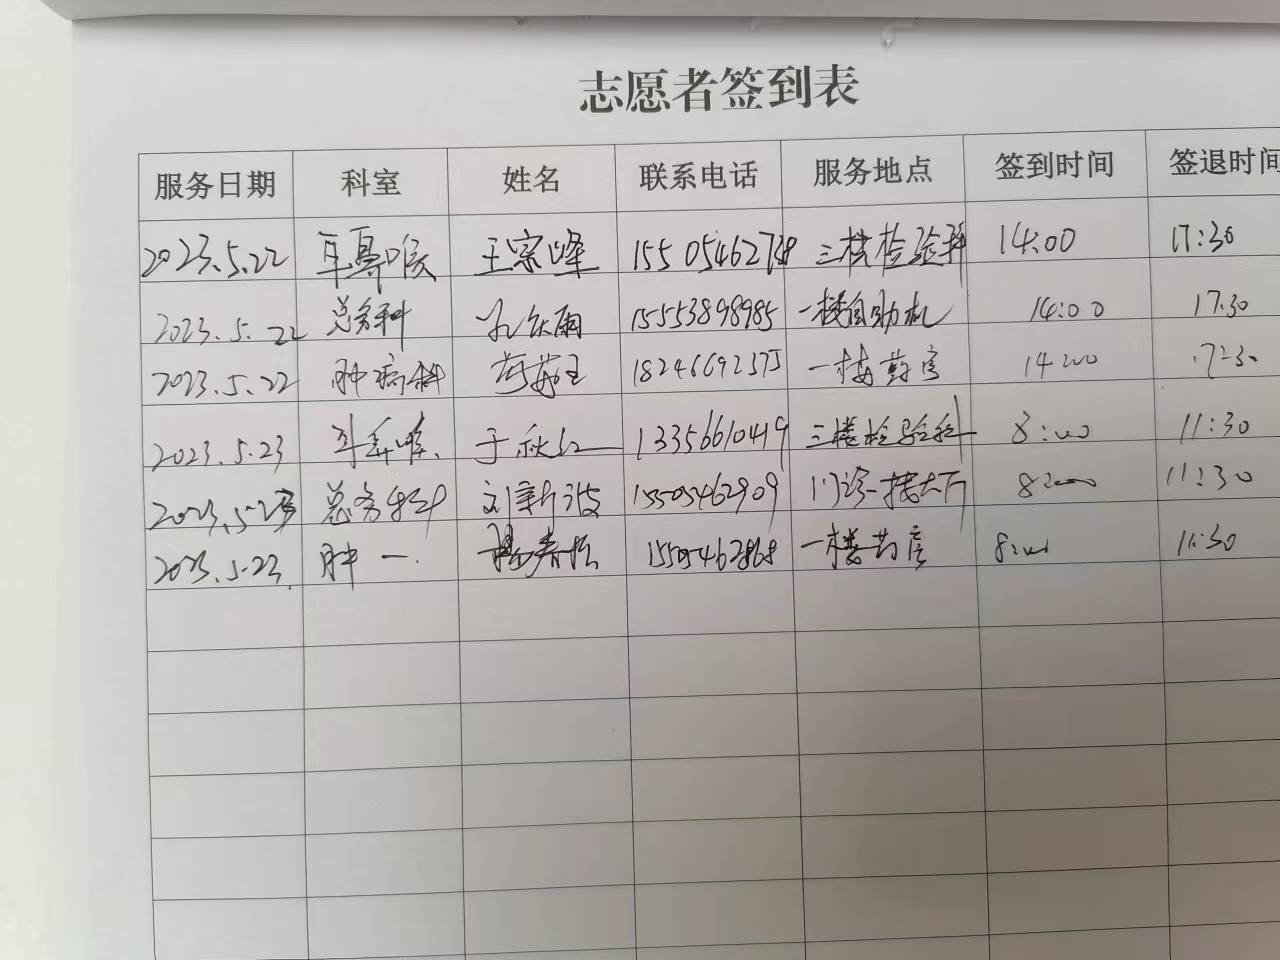 志愿者签到表
服务日期 科室 姓名 联系电话 服务地点 签到时间 签退时间
2023.5.22 耳鼻喉 王宗峰 三楼检验科 14:00 17:30
2023.5.22 总务科 孔庆雨 15553898985 一楼自助机 14:00 17:30
2023.5.22 肿瘤科 18246692375 一楼药房 14:00 17:30
2023.5.23 耳鼻喉 于秋红 13356610419 三楼检验科 8:00 11:30
2023.5.23 总务科 刘新波 15505462909 门诊一楼大厅 8:00 11:30
2023.5.23 肿一 15505462868 一楼药房 8:00 11:30